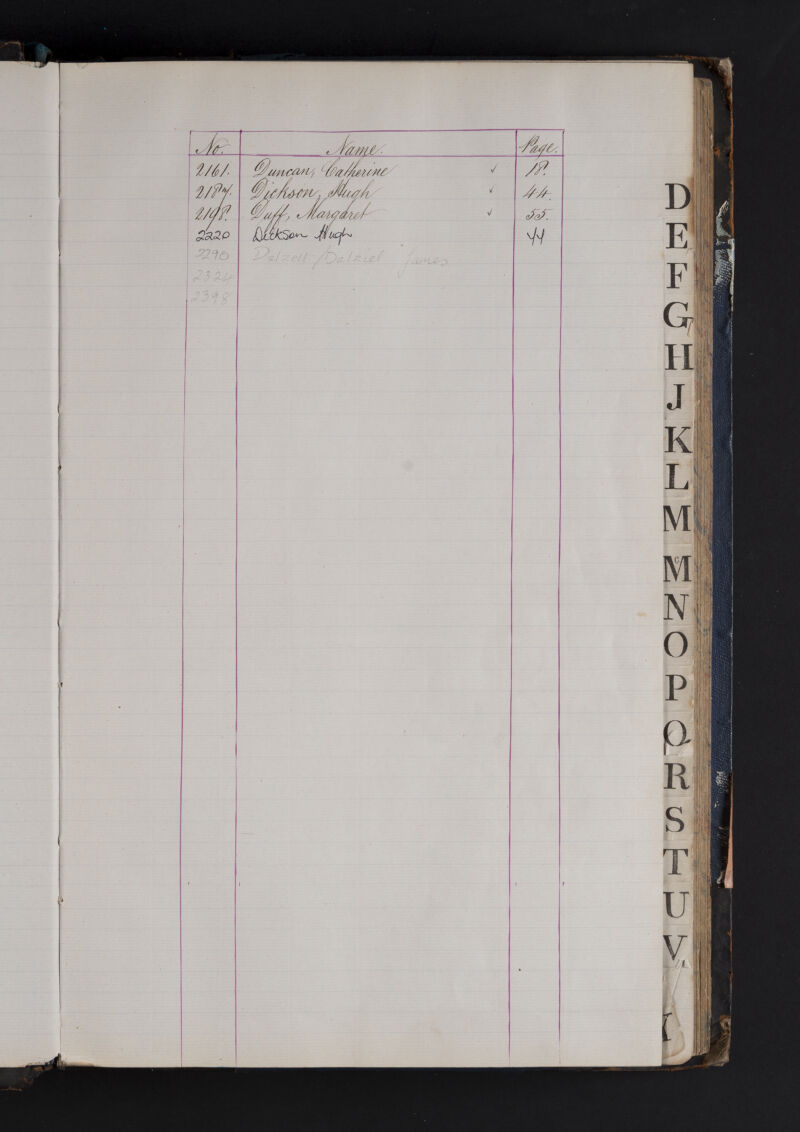 No. Name. Page.
2161. Duncan, Catherine ✓ 18.
2187. Dickson, Hugh ✓ 44.
2198. Duff, Margaret ✓ 55.
2220 Dickson Hugh 44
2290 Dalzell/Dalziel James
2324
2398
D
E
F
G
H
J
K
L
M
Mc
N
O
P
Q
R
S
T
U
V